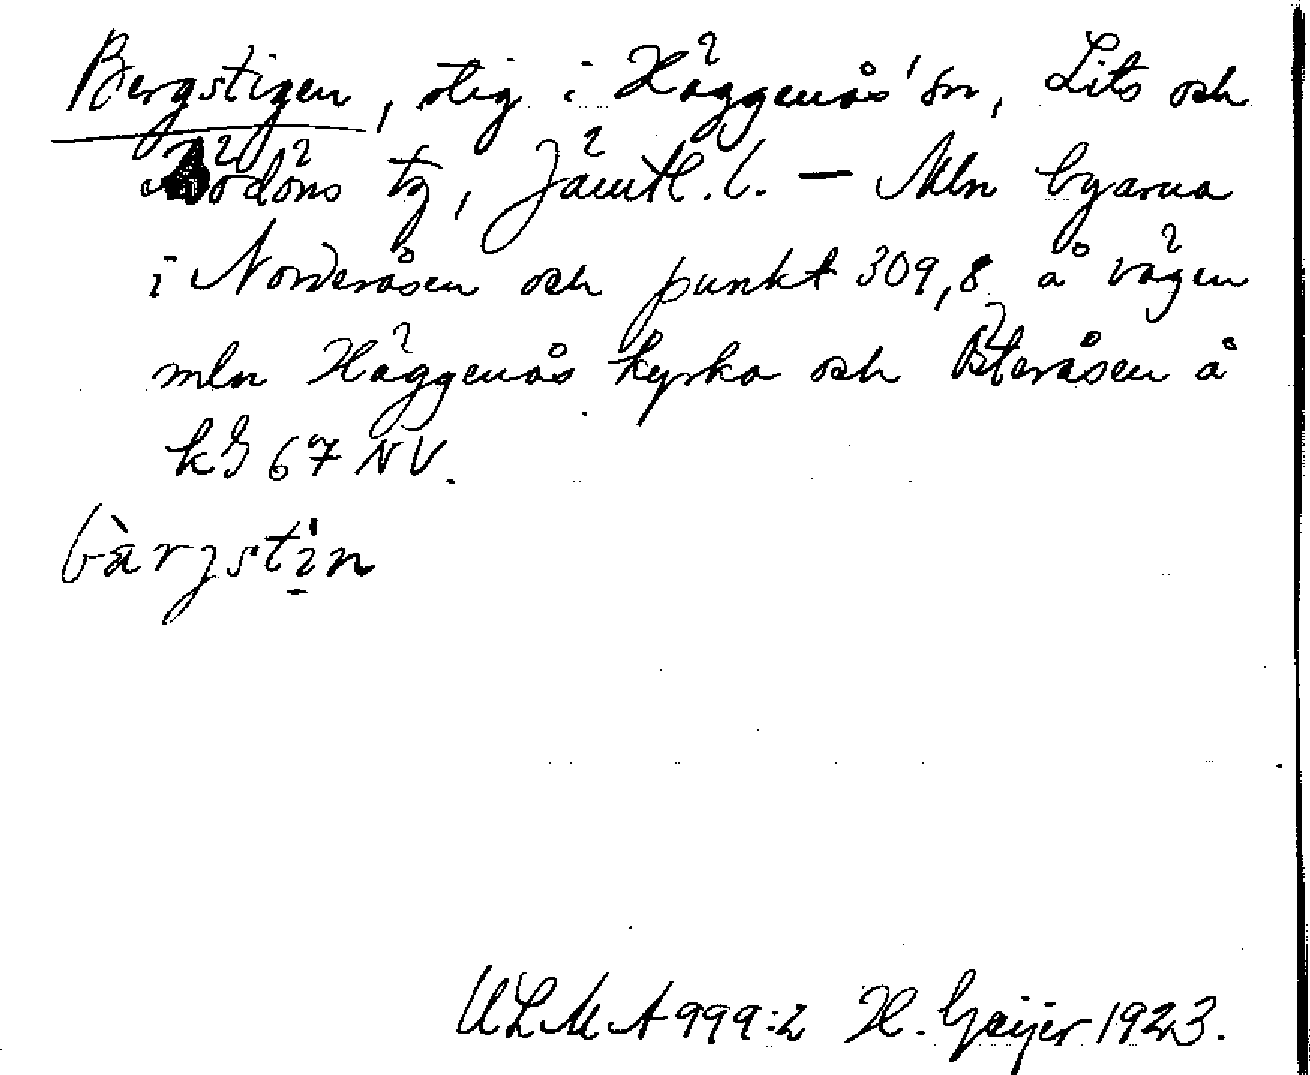 Bergstigen, stig i Häggenås' sn, Lits och
Rödöns tg, Jämtl. l. — Mln byarna
i Norderåsen och punkt 309,8 å vägen
mln Häggenås kyrka och Österåsen å
kg 67 NV.
bàrjstin
ULMA 999:2 H. Geijer 1923.